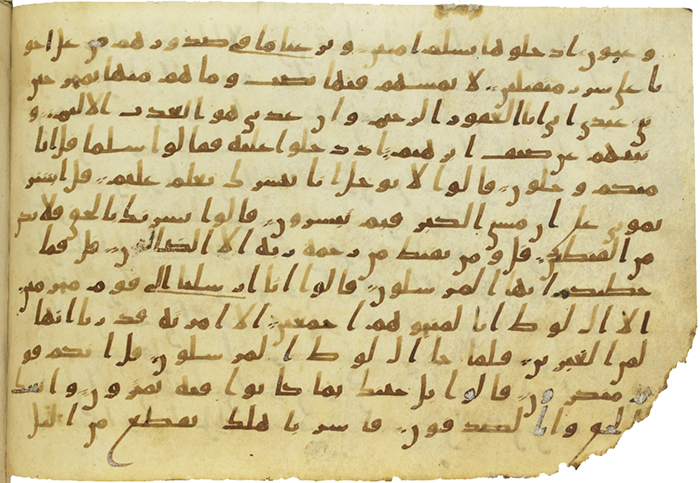 وعيون ادخلوها بسلم امنين ونزعنا ما في صدورهم من غل اخو
نا على سرر متقبلين لا يمسهم فيها نصب وما هم منها بمخرجين
نبى عبدي اني انا الغفور الرحيم وان عذبي هو العذب الاليم و
نبيهم عن ضيف ابرهيم اذ دخلوا عليه فقالوا سلما قل انا
منكم وجلون قالوا لا توجل انا نبشرك بغلم عليم قل ابشر
تموني على ان مسني الكبر فبم تبشرون قالوا بشرنك بالحق فلا تكن
من القنطين قل ومن يقنط من رحمه ربه الا الضالون قل فما
خطبكم ايها المرسلون قالوا انا ارسلنا الى قوم مجرمين
الا ال لوط انا لمنجوهم اجمعين الا امرته قدرنا انها
لمن الغبرين فلما جا ال لوط المرسلون قل انكم قو
م منكرون قالوا بل جينك بما كانوا فيه يمترون واتينك
بالحق وانا لصدقون فاسر باهلك بقطع من اليل